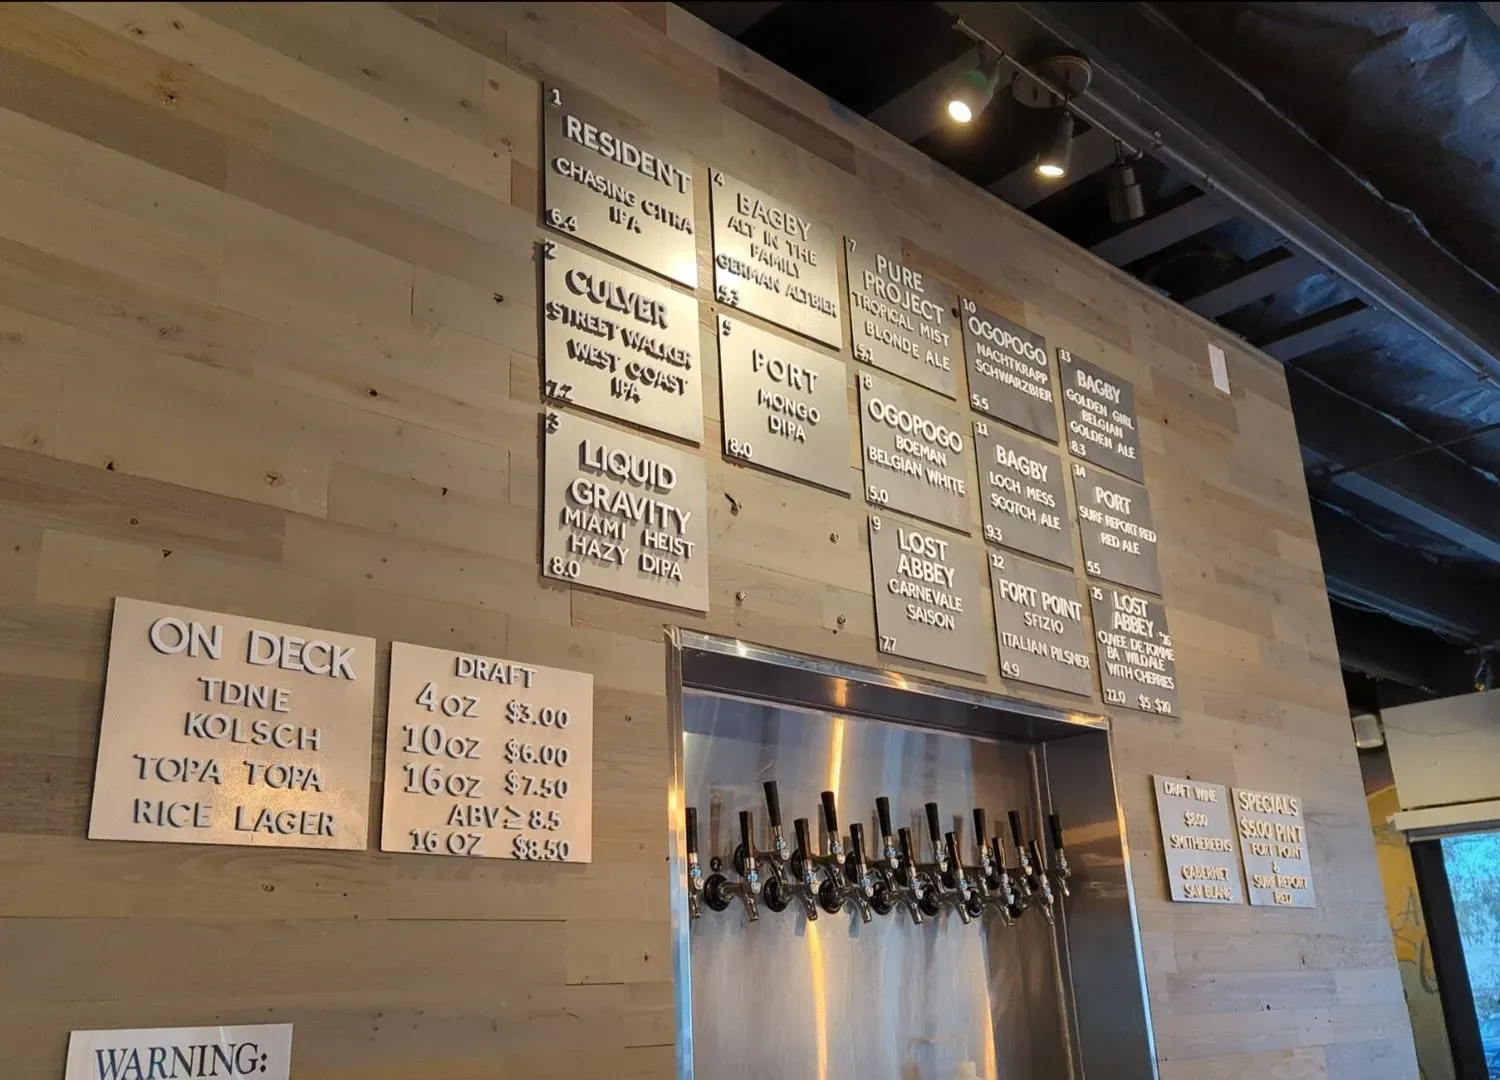 1
RESIDENT
CHASING CITRA
IPA
6.4
2
CULVER
STREET WALKER
WEST COAST
IPA
7.2
3
LIQUID
GRAVITY
MIAMI HEIST
HAZY DIPA
8.0
4
BAGBY
ALT IN THE
FAMILY
GERMAN ALTBIER
5.3
5
PORT
MONGO
DIPA
8.0
7
PURE
PROJECT
TROPICAL MIST
BLONDE ALE
5.1
8
OGOPOGO
BOEMAN
BELGIAN WHITE
5.0
9
LOST
ABBEY
CARNEVALE
SAISON
7.7
10
OGOPOGO
NACHTKRAPP
SCHWARZBIER
5.5
11
BAGBY
LOCH MESS
SCOTCH ALE
9.3
12
FORT POINT
SFIZIO
ITALIAN PILSNER
4.9
13
BAGBY
GOLDEN GIRL
BELGIAN
GOLDEN ALE
8.3
14
PORT
SURF REPORT RED
RED ALE
5.5
15
LOST
ABBEY '16
CUVEE DE TOMME
BA WILD ALE
WITH CHERRIES
11.0 $5 $10
ON DECK
TDNE
KOLSCH
TOPA TOPA
RICE LAGER
DRAFT
4 OZ $3.00
10 OZ $6.00
16 OZ $7.50
ABV ≥ 8.5
16 OZ $8.50
DRAFT WINE
$8.00
SMITHEREENS
CABERNET
SAV BLANC
SPECIALS
$5.00 PINT
FORT POINT
&
SURF REPORT
RED
WARNING: